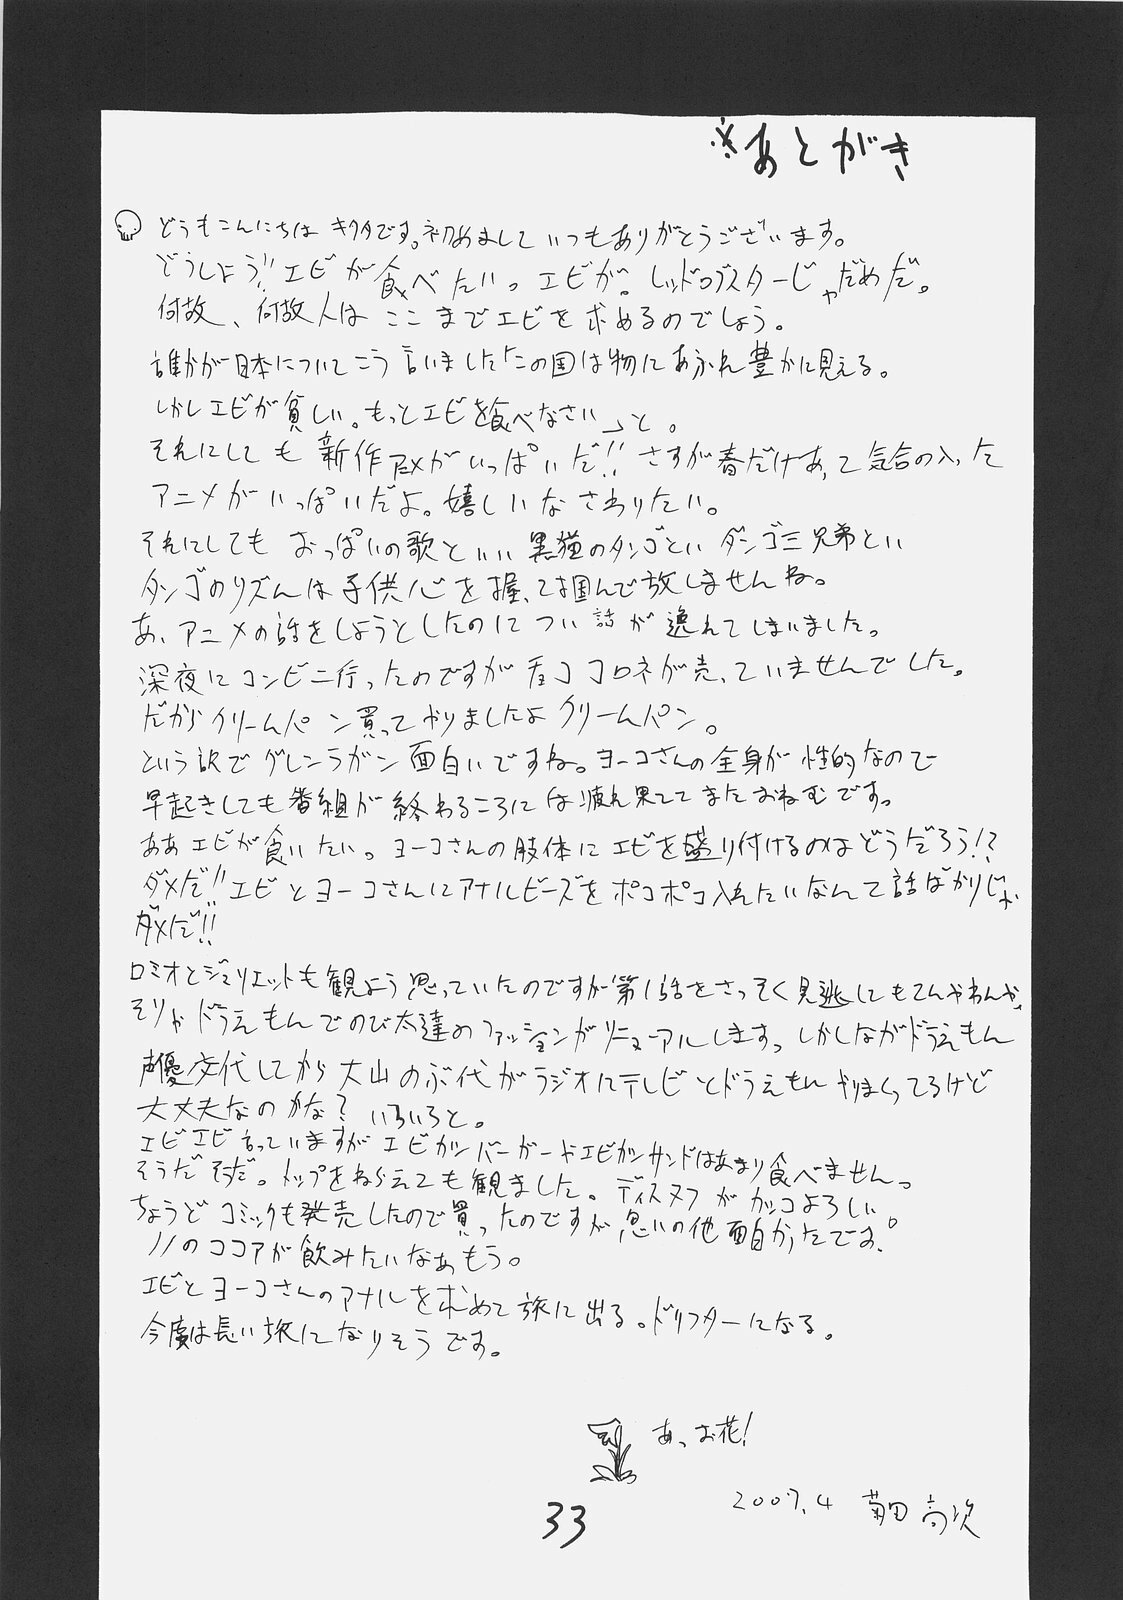 ※あとがき
どうもこんにちは キクタです。初めまして いつもありがとうございます。
どうしよう!! エビが食べたいっ エビが。レッドロブスターじゃだめだ。
何故、何故人は ここまでエビを求めるのでしょう。
誰かが日本についてこう言いました「この国は物にあふれ豊かに見える。
しかしエビが貧しい。もっとエビを食べなさい」と。
それにしても 新作アニメがいっぱいだ!! さすが春だけあって気合の入った
アニメがいっぱいだよ。嬉しいなさわりたい。
それにしても おっぱいの歌といい 黒猫のタンゴといい ダンゴ三兄弟といい
タンゴのリズムは子供心を握って掴んで放しませんね。
あ、アニメの話をしようとしたのについ話が逸れてしまいました。
深夜にコンビニ行ったのですがチョココロネが売っていませんでした。
だからクリームパン買ってやりましたよクリームパン。
という訳でグレンラガン面白いですね。ヨーコさんの全身が性的なので
早起きしても番組が終わるころには疲れ果ててまたおねむです。
ああエビが食いたい。ヨーコさんの肢体にエビを盛り付けるのはどうだろう!?
ダメだ!! エビとヨーコさんにアナルビーズをポコポコ入れたいなんて話ばかりじゃ
ダメだ!!
ロミオとジュリエットも観よう思っていたのですが第1話をさっそく見逃してもてんやわんや、
そりゃドラえもんでのび太達のファッションがリニューアルしますっ しかしながドラえもん
声優交代してから大山のぶ代がラジオにテレビとドラえもんやりまくってるけど
大丈夫なのかな? いろいろと。
エビエビ言っていますがエビカツバーガーやエビカツサンドはあまり食べませんっ
そうだそうだ。トップをねらえても観ました。ディスヌフがカッコよろしい
ちょうどコミックも発売したので買ったのですが思いの他面白かったです。
ノノのココアが飲みたいなぁもう。
エビとヨーコさんのアナルを求めて旅に出る。ドリフターになる。
今度は長い旅になりそうです。
あっお花!
2007.4 菊田高次
33